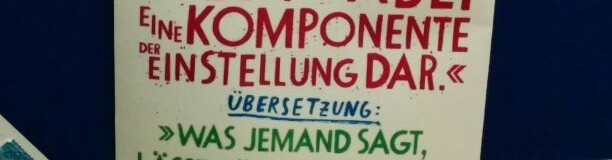 EINE KOMPONENTE
DER EINSTELLUNG DAR.«
ÜBERSETZUNG:
»WAS JEMAND SAGT,